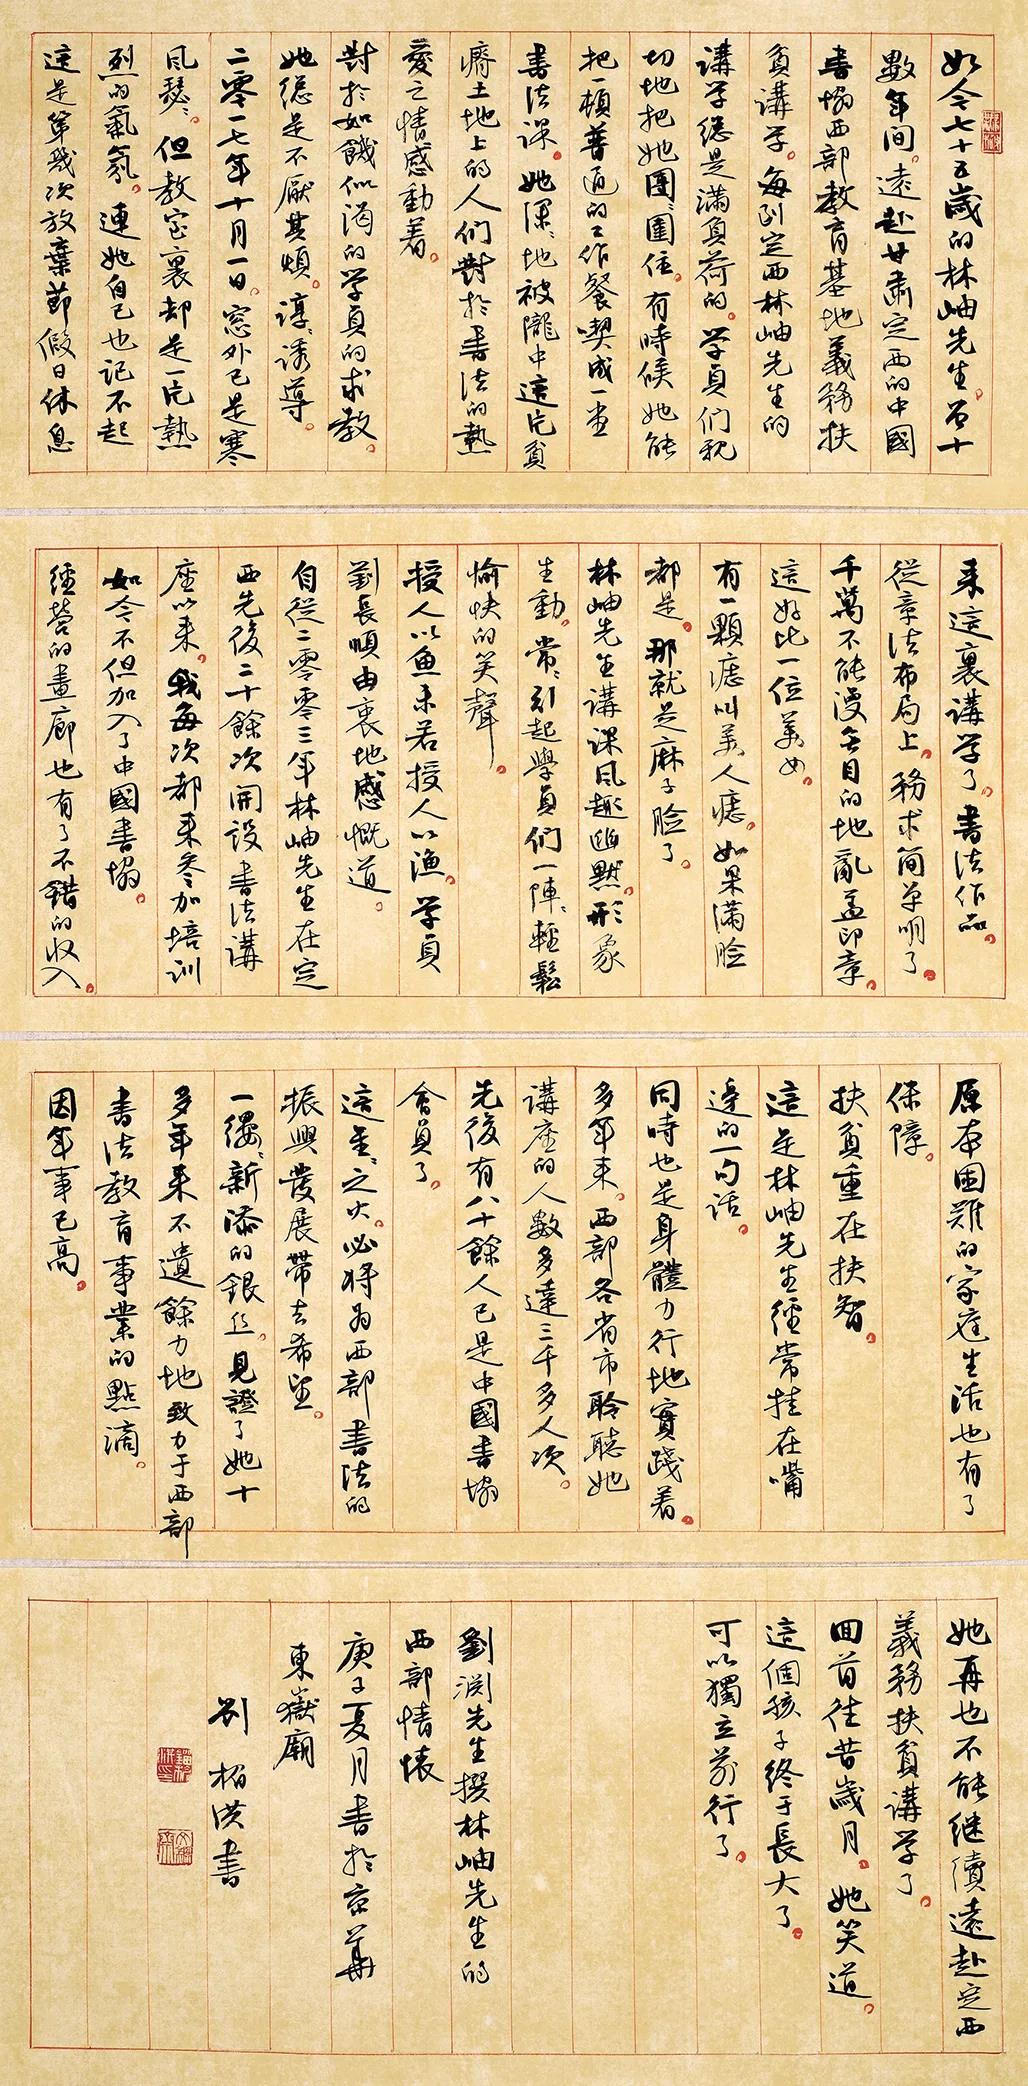 如今七十五歲的林岫先生。四十
數年間。遠赴甘肅定西的中國
書協西部教育基地義務扶
貧講学。每到定西林岫先生的
講学總是滿負荷的。学員们親
切地把她團〻圍住。有時候她能
把一頓普通的工作餐喫成一堂
書法課。她深〻地被隴中這片貧
瘠土地上的人们對於書法的熱
愛之情感動着。
對於如饑似渴的学員的求教。
她總是不厭其煩。諄〻誘導。
二零一七年十月一日。窓外已是寒
風瑟〻。但教室裏却是一片熱
烈的氣氛。連她自己也記不起
這是第幾次放棄節假日休息
来這裏講学了。書法作品。
從章法布局上。務求简单明了。
千萬不能漫無目的地亂蓋印章。
這好比一位美女。
有一顆痣叫美人痣。如果滿脸
都是。那就是麻子脸了。
林岫先生講課風趣幽默。形象
生動。常〻引起學員们一陣〻輕鬆
愉快的笑聲。
授人以鱼未若授人以渔。学員
劉長順由衷地感慨道。
自從二零零三年林岫先生在定
西先後二十餘次開設書法講
座以来。我每次都来参加培訓
如今不但加入了中國書協。
經营的畫廊也有了不錯的收入。
原本困难的家庭生活也有了
保障。
扶貧重在扶智。
這是林岫先生經常挂在嘴
邊的一句话。
同時也是身體力行地實踐着。
多年来。西部各省市聆聽她
講座的人數多達三千多人次。
先後有八十餘人已是中國書協
會員了。
這星〻之火。必将为西部書法的
振興發展帶去希望。
一縷〻新添的银丝。見證了她十
多年来不遺餘力地致力于西部
書法教育事業的點滴。
因年事已高。
她再也不能继續遠赴定西
義務扶貧講学了。
回首往昔歲月。她笑道。
這個孩子终于長大了。
可以獨立前行了。
劉渊先生撰林岫先生的
西部情懐
庚子夏月書於京華
東嶽廟
刘栢洪書